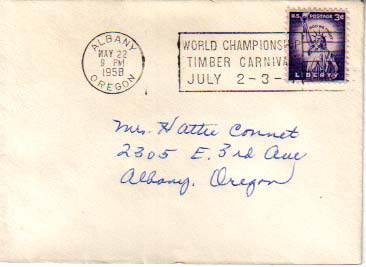 ALBANY
MAY 22
9 PM
1958
OREGON
WORLD CHAMPIONSHIP
TIMBER CARNIVAL
JULY 2-3-
U.S. POSTAGE 3¢
IN GOD WE TRUST
LIBERTY
Mrs. Hattie Connet
2305 E. 3rd Ave
Albany, Oregon